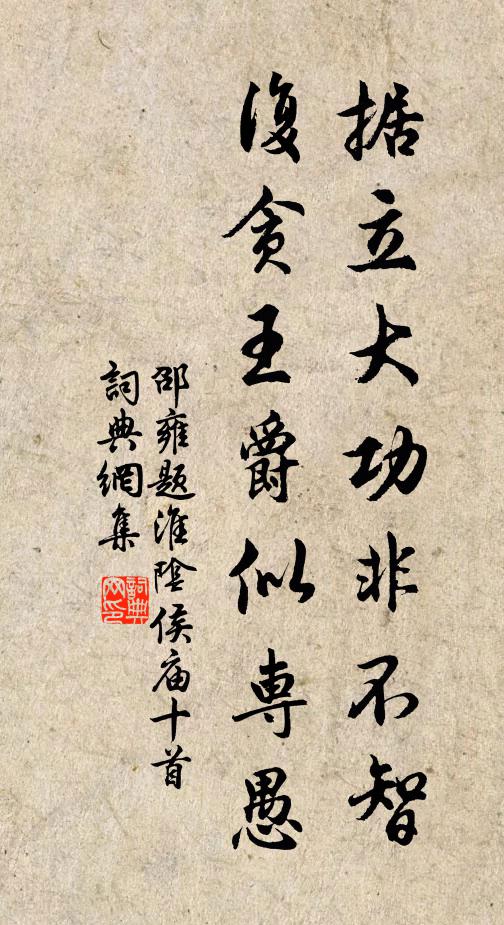 据立大功非不智
復貪王爵似専愚
邵雍題淮陰侯庙十首
詞典網集
詞典網印